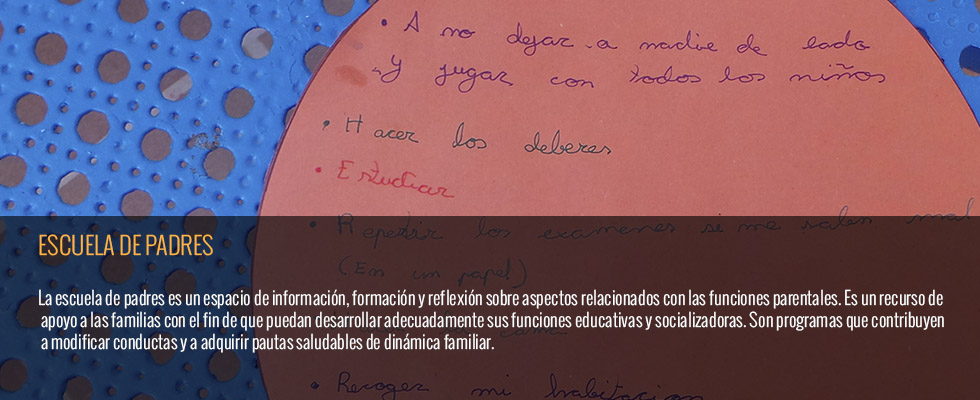 • A no dejar a nadie de lado
y jugar con todos los niños
• Hacer los deberes
• Estudiar
• Repetir los examenes si me salen mal
(En un papel)
ESCUELA DE PADRES
La escuela de padres es un espacio de información, formación y reflexión sobre aspectos relacionados con las funciones parentales. Es un recurso de
apoyo a las familias con el fin de que puedan desarrollar adecuadamente sus funciones educativas y socializadoras. Son programas que contribuyen
a modificar conductas y a adquirir pautas saludables de dinámica familiar.
• Recoger mi habitacion